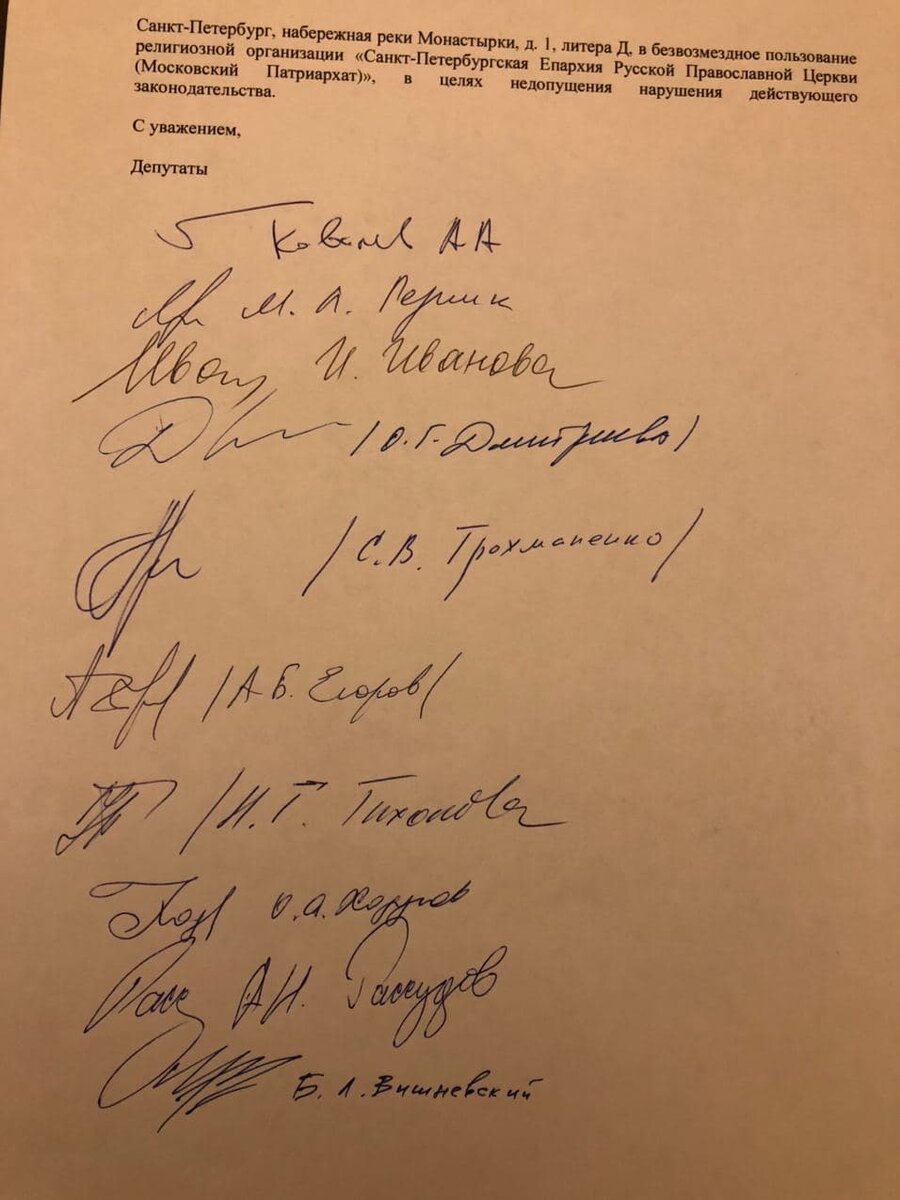 Санкт-Петербург, набережная реки Монастырки, д. 1, литера Д, в безвозмездное пользование
религиозной организации «Санкт-Петербургская Епархия Русской Православной Церкви
(Московский Патриархат)», в целях недопущения нарушения действующего
законодательства.
С уважением,
Депутаты
Ковалев АА
М. А. Резник
И. Иванова
/О.Г. Дмитриева/
/С.В. Трохманенко/
/А.Б. Егоров/
/И.Г. Тихонова
О.А.
А.Н. Рассудов
Б.Л. Вишневский